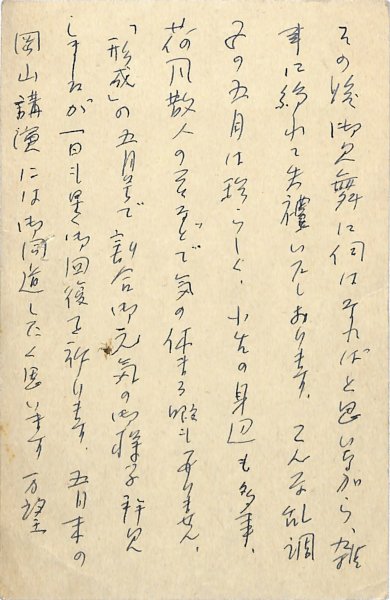 その後御見舞に伺はずればと思い乍ら、雑
事に紛れて失禮いたしおります。こんな乱調
の五月は珍らしく、小生の身辺も多事、
荷風散人の死などで気の休まる暇もありません。
「形成」の五月号で割合御元気の御様子拝見
しましたが一日も早く御回復を祈ります。五月末の
岡山講演には御同道したく思います 万望